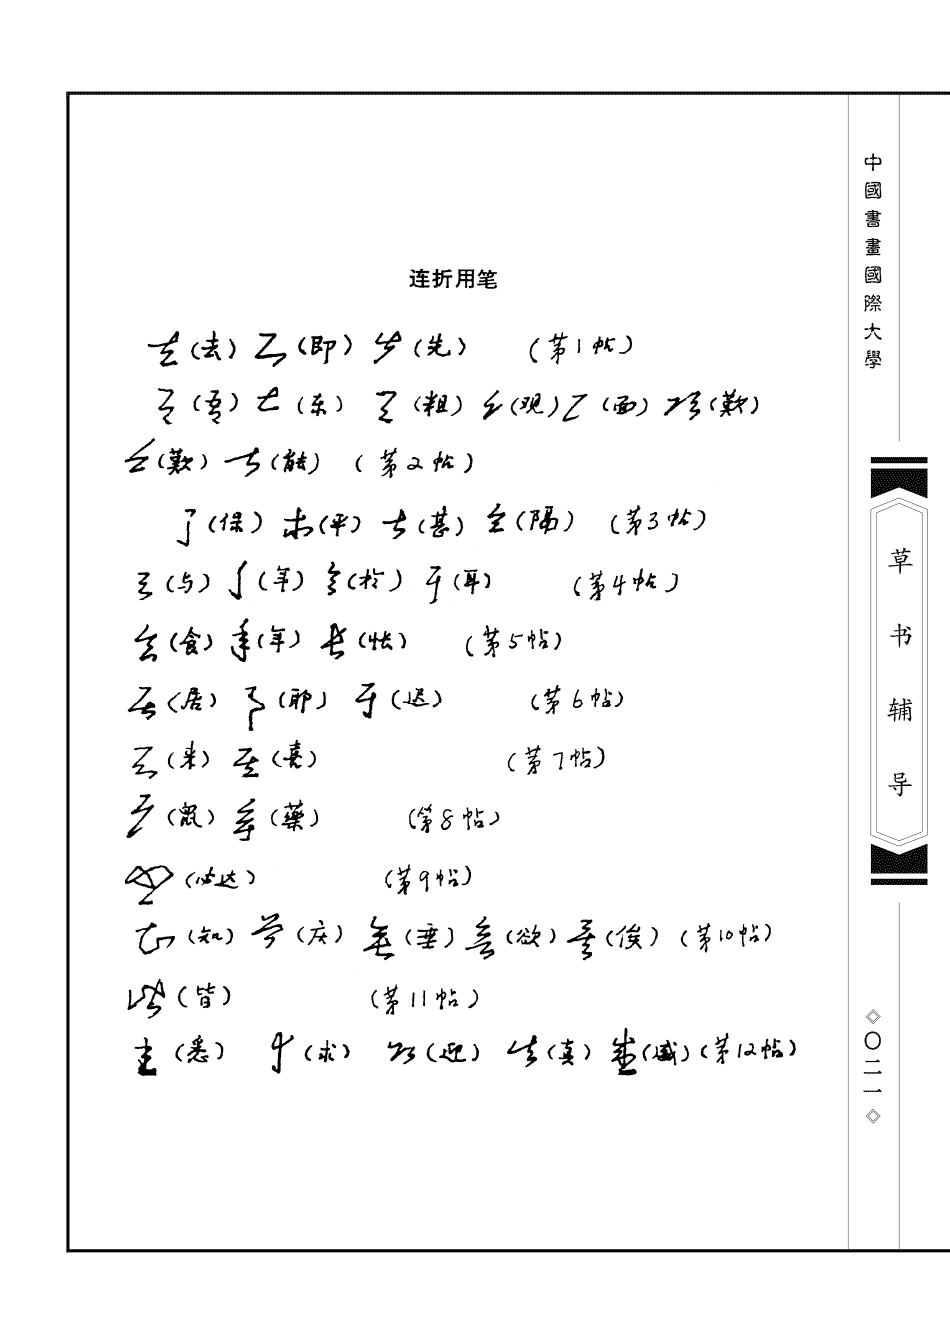 连折用笔
(去) (即) (先) (第1帖)
(吾) (东) (粗) (观) (面) (歎)
(歎) (能) (第2帖)
(保) (平) (甚) (隔) (第3帖)
(与) (年) (於) (耳) (第4帖)
(食) (年) (怅) (第5帖)
(居) (耶) (迟) (第6帖)
(来) (喜) (第7帖)
(鼠) (藥) (第8帖)
(必达) (第9帖)
(知) (庆) (垂) (欲) (俟) (第10帖)
(皆) (第11帖)
(悉) (求) (迎) (真) (盛) (第12帖)
中國書畫國際大學
草书辅导
◇〇二一◇